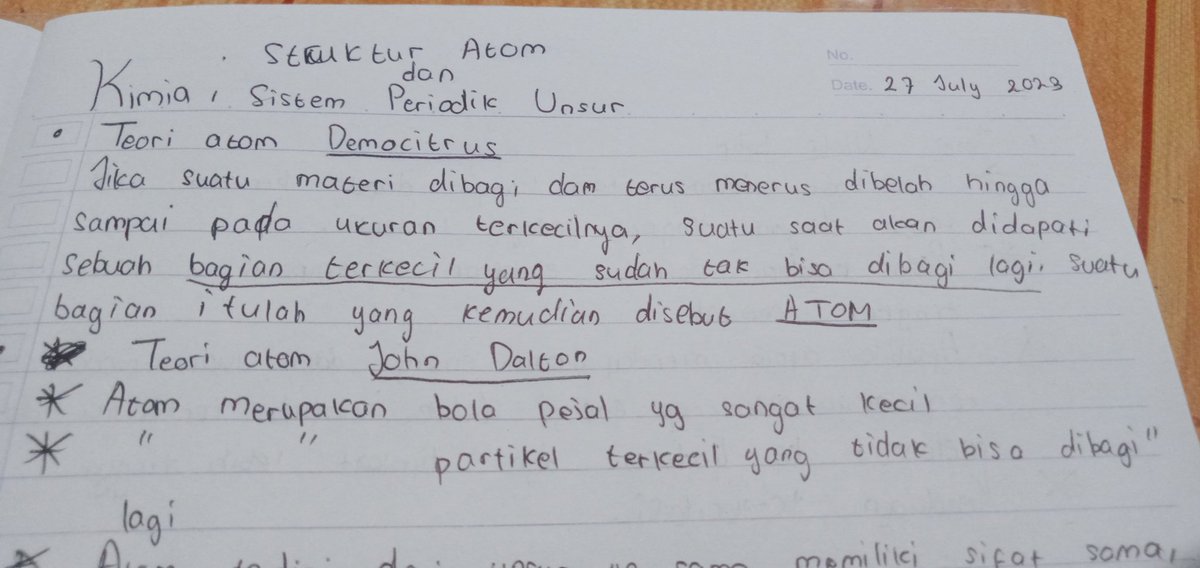 Struktur Atom
dan
Kimia, Sistem Periodik Unsur
No.
Date. 27 July 2023
• Teori atom Democitrus
Jika suatu materi dibagi, dam terus menerus dibelah hingga
sampai pada ukuran terkecilnya, suatu saat akan didapati
sebuah bagian terkecil yang sudah tak bisa dibagi lagi. Suatu
bagian itulah yang kemudian disebut ATOM
Teori atom John Dalton
* Atom merupakan bola pejal yg sangat kecil
* " " partikel terkecil yang tidak bisa dibagi"
lagi
memiliki sifat sama,